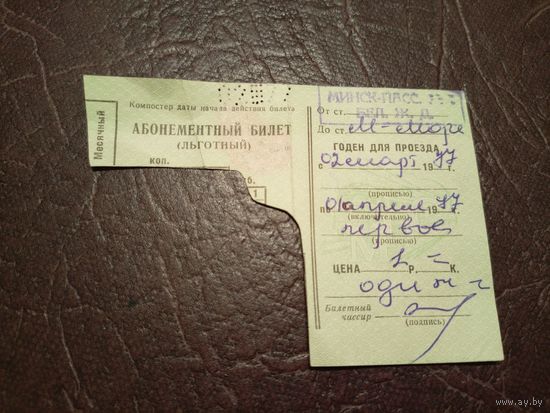 Месячный
Компостер даты начала действия билета
АБОНЕМЕНТНЫЙ БИЛЕТ
(ЛЬГОТНЫЙ)
коп.
1
МИНСК-ПАСС.
От ст. БЕЛ. Ж. Д.
До ст. М-Море
ГОДЕН ДЛЯ ПРОЕЗДА
с 02 март 1977 г.
(прописью)
по 01 апреле 1977 г.
(включительно)
первое
(прописью)
ЦЕНА 1 Р. = К.
один
Билетный
кассир
(подпись)
www.ay.by